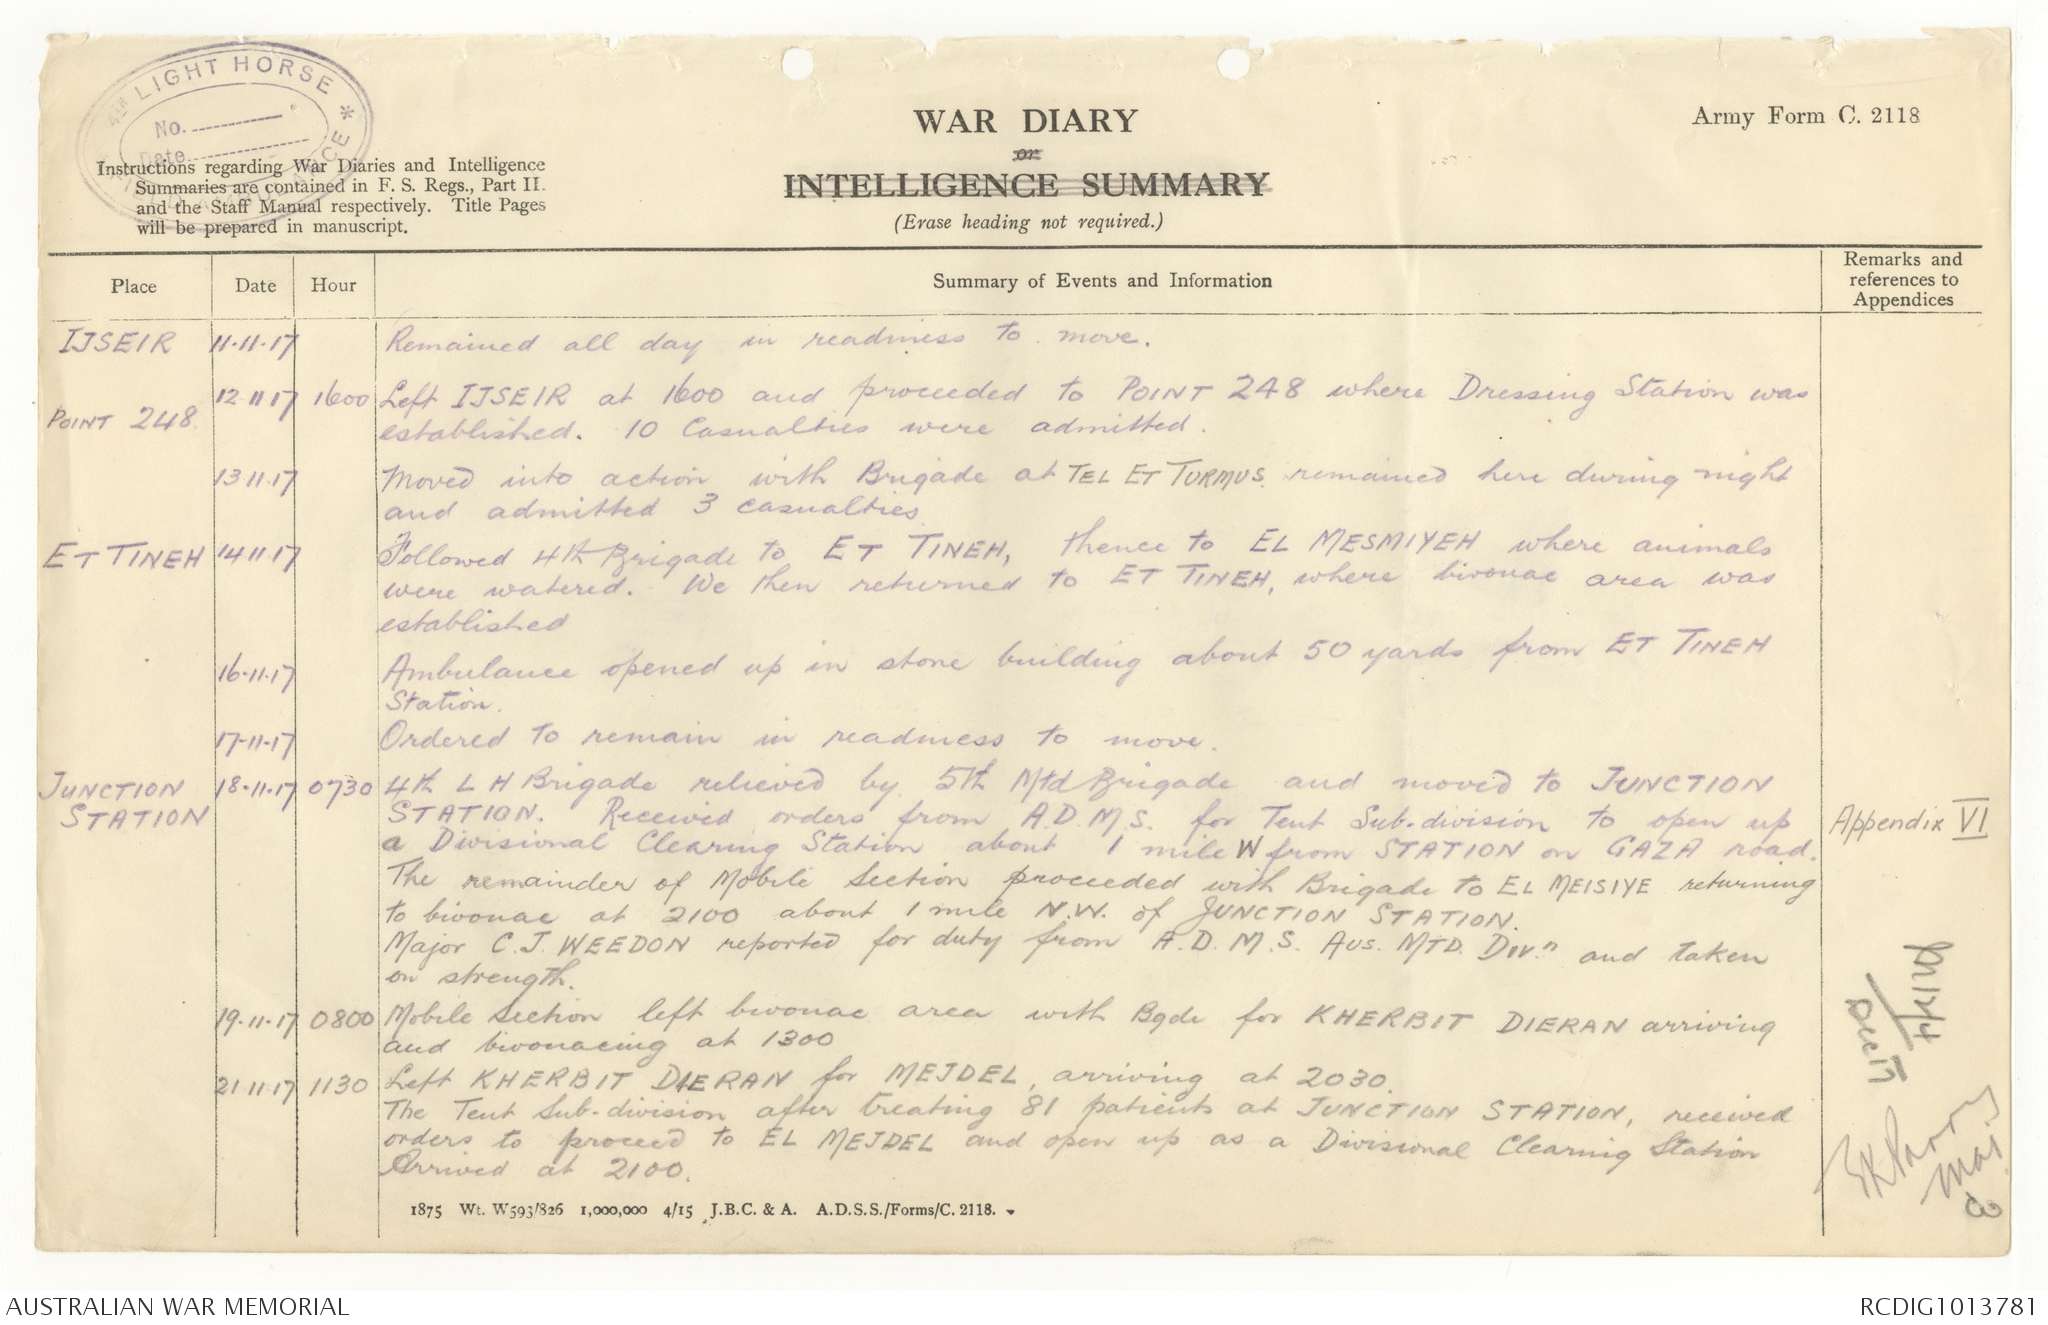 4TH LIGHT HORSE *
No.
Date
Instructions regarding War Diaries and Intelligence
Summaries are contained in F. S. Regs., Part II.
and the Staff Manual respectively. Title Pages
will be prepared in manuscript.
WAR DIARY
or
INTELLIGENCE SUMMARY
(Erase heading not required.)
Army Form C. 2118
Place
Date
Hour
Summary of Events and Information
Remarks and
references to
Appendices
IJSEIR 11-11-17 Remained all day in readiness to move.
12-11-17 1600 Left IJSEIR at 1600 and proceeded to POINT 248 where Dressing Station was
POINT 248. established. 10 Casualties were admitted.
13-11-17 Moved into action with Brigade at TEL ET TURMUS. remained here during night
and admitted 3 casualties
ET TINEH 14-11-17 Followed 4th Brigade to ET TINEH, thence to EL MESMIYEH where animals
were watered. We then returned to ET TINEH, where bivouac area was
established
16-11-17 Ambulance opened up in stone building about 50 yards from ET TINEH
Station.
17-11-17 Ordered to remain in readiness to move.
JUNCTION 18-11-17 0730 4th L H Brigade relieved by 5th Mtd Brigade and moved to JUNCTION
STATION STATION. Received orders from A.D.M.S. for Tent Sub-division to open up Appendix VI
a Divisional Clearing Station about 1 mile W from STATION on GAZA road.
The remainder of Mobile Section proceeded with Brigade to EL MEISIYE returning
to bivouac at 2100 about 1 mile N.W. of JUNCTION STATION.
Major C.J. WEEDON reported for duty from A.D.M.S. AUS. MTD. DIVn and taken
on strength.
19-11-17 0800 Mobile Section left bivouac area with Bgde for KHERBIT DIERAN arriving
and bivouacing at 1300
21-11-17 1130 Left KHERBIT DIERAN for MEJDEL, arriving at 2030.
The Tent Sub-division after treating 81 patients at JUNCTION STATION, received
orders to proceed to EL MEJDEL and open up as a Divisional Clearing Station
Arrived at 2100.
1875 Wt. W593/826 1,000,000 4/15 J.B.C. & A. A.D.S.S./Forms/C. 2118.
AUSTRALIAN WAR MEMORIAL
RCDIG1013781